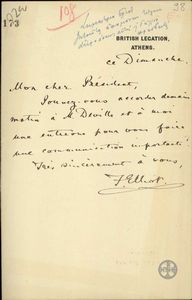 173
108
38
BRITISH LEGATION,
ATHENS.
ce Dimanche.
Mon cher Président,
Pouvez-vous accorder demain
matin à M. Deville et à moi
une entrevue pour vous faire
une communication importante?
Très sincèrement à vous,
F. Elliot